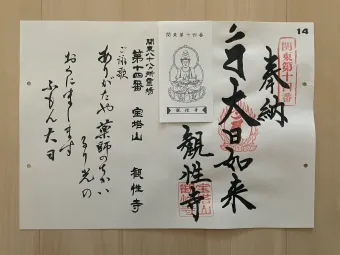 14
奉納
関東第十四番
大日如来
観性寺
関東第十四番
観性寺
関東八十八ヵ所霊場
第十四番 宝塔山 観性寺
ご詠歌
ありがたや薬師のちかい
るり光の
おくにまします
ふもん大日